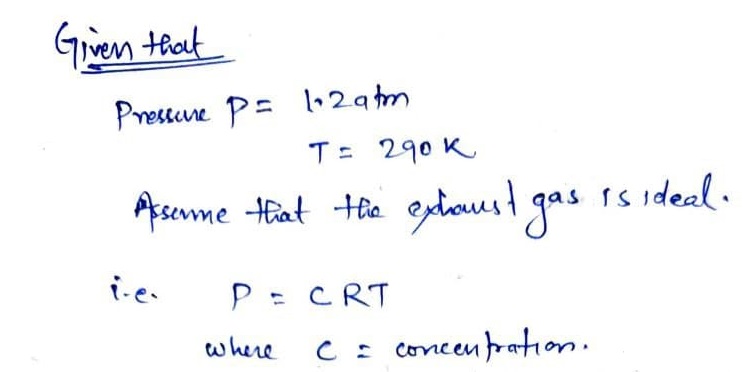 Given that
Pressure P = 1.2 atm
T = 290 K
Assume that the exhaust gas is ideal.
i.e. P = CRT
where C = concentration.